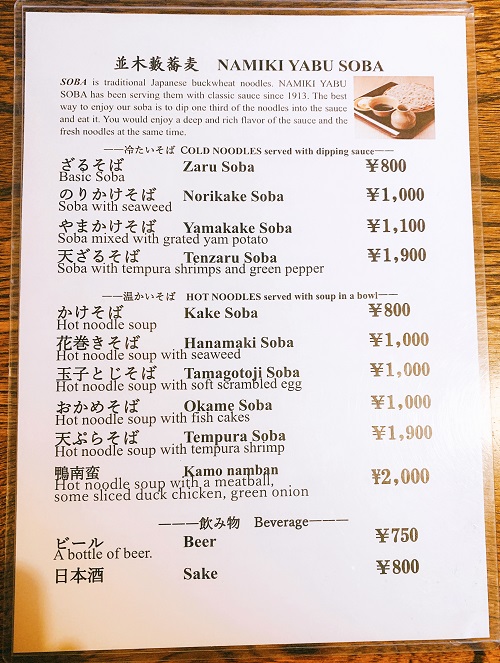 並木藪蕎麦 NAMIKI YABU SOBA
SOBA is traditional Japanese buckwheat noodles. NAMIKI YABU
SOBA has been serving them with classic sauce since 1913. The best
way to enjoy our soba is to dip one third of the noodles into the sauce
and eat it. You would enjoy a deep and rich flavor of the sauce and the
fresh noodles at the same time.
――冷たいそば COLD NOODLES served with dipping sauce――
ざるそば Zaru Soba ￥800
Basic Soba
のりかけそば Norikake Soba ￥1,000
Soba with seaweed
やまかけそば Yamakake Soba ￥1,100
Soba mixed with grated yam potato
天ざるそば Tenzaru Soba ￥1,900
Soba with tempura shrimps and green pepper
――温かいそば HOT NOODLES served with soup in a bowl――
かけそば Kake Soba ￥800
Hot noodle soup
花巻きそば Hanamaki Soba ￥1,000
Hot noodle soup with seaweed
玉子とじそば Tamagotoji Soba ￥1,000
Hot noodle soup with soft scrambled egg
おかめそば Okame Soba ￥1,000
Hot noodle soup with fish cakes
天ぷらそば Tempura Soba ￥1,900
Hot noodle soup with tempura shrimp
鴨南蛮 Kamo namban ¥2,000
Hot noodle soup with a meatball,
some sliced duck chicken, green onion
―――飲み物 Beverage―――
ビール Beer ￥750
A bottle of beer.
日本酒 Sake ￥800